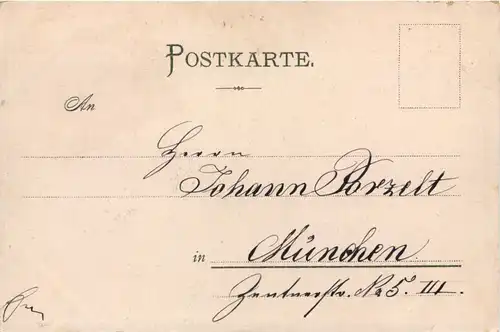 POSTKARTE.
An
Herrn
Johann Porzelt
in München.
Zentnerstr. No 5. III.